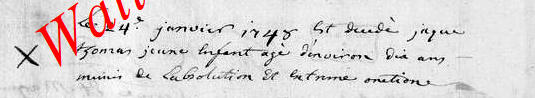 Le 24e janvier 1748 Est decedè jaque
thomas jeune Enfant agè d'environ dix ans
munis de Labsolution Et Extrême onction